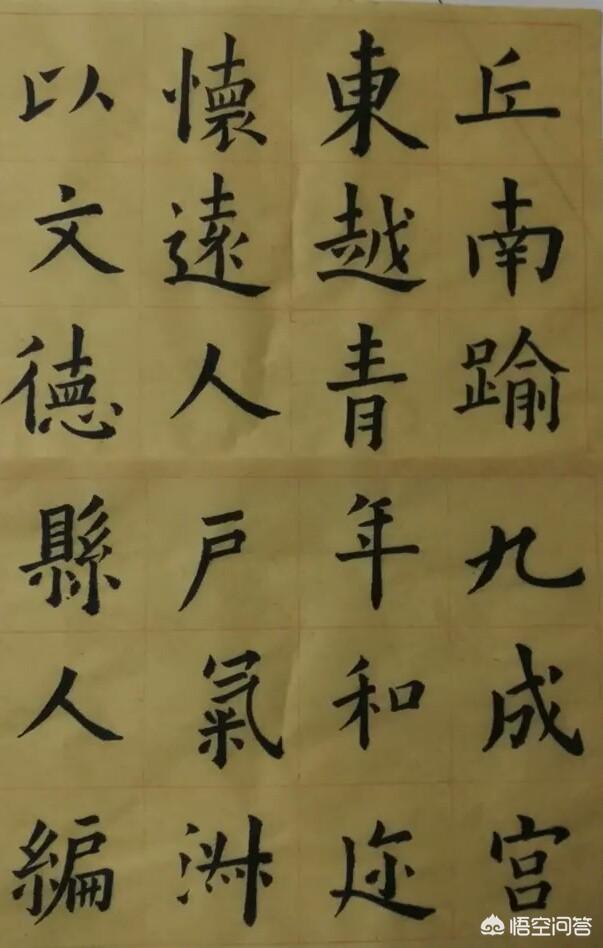 丘南踰九成宫
東越青年和迩
懷遠人戸氣
以文德縣人編
悟空问答